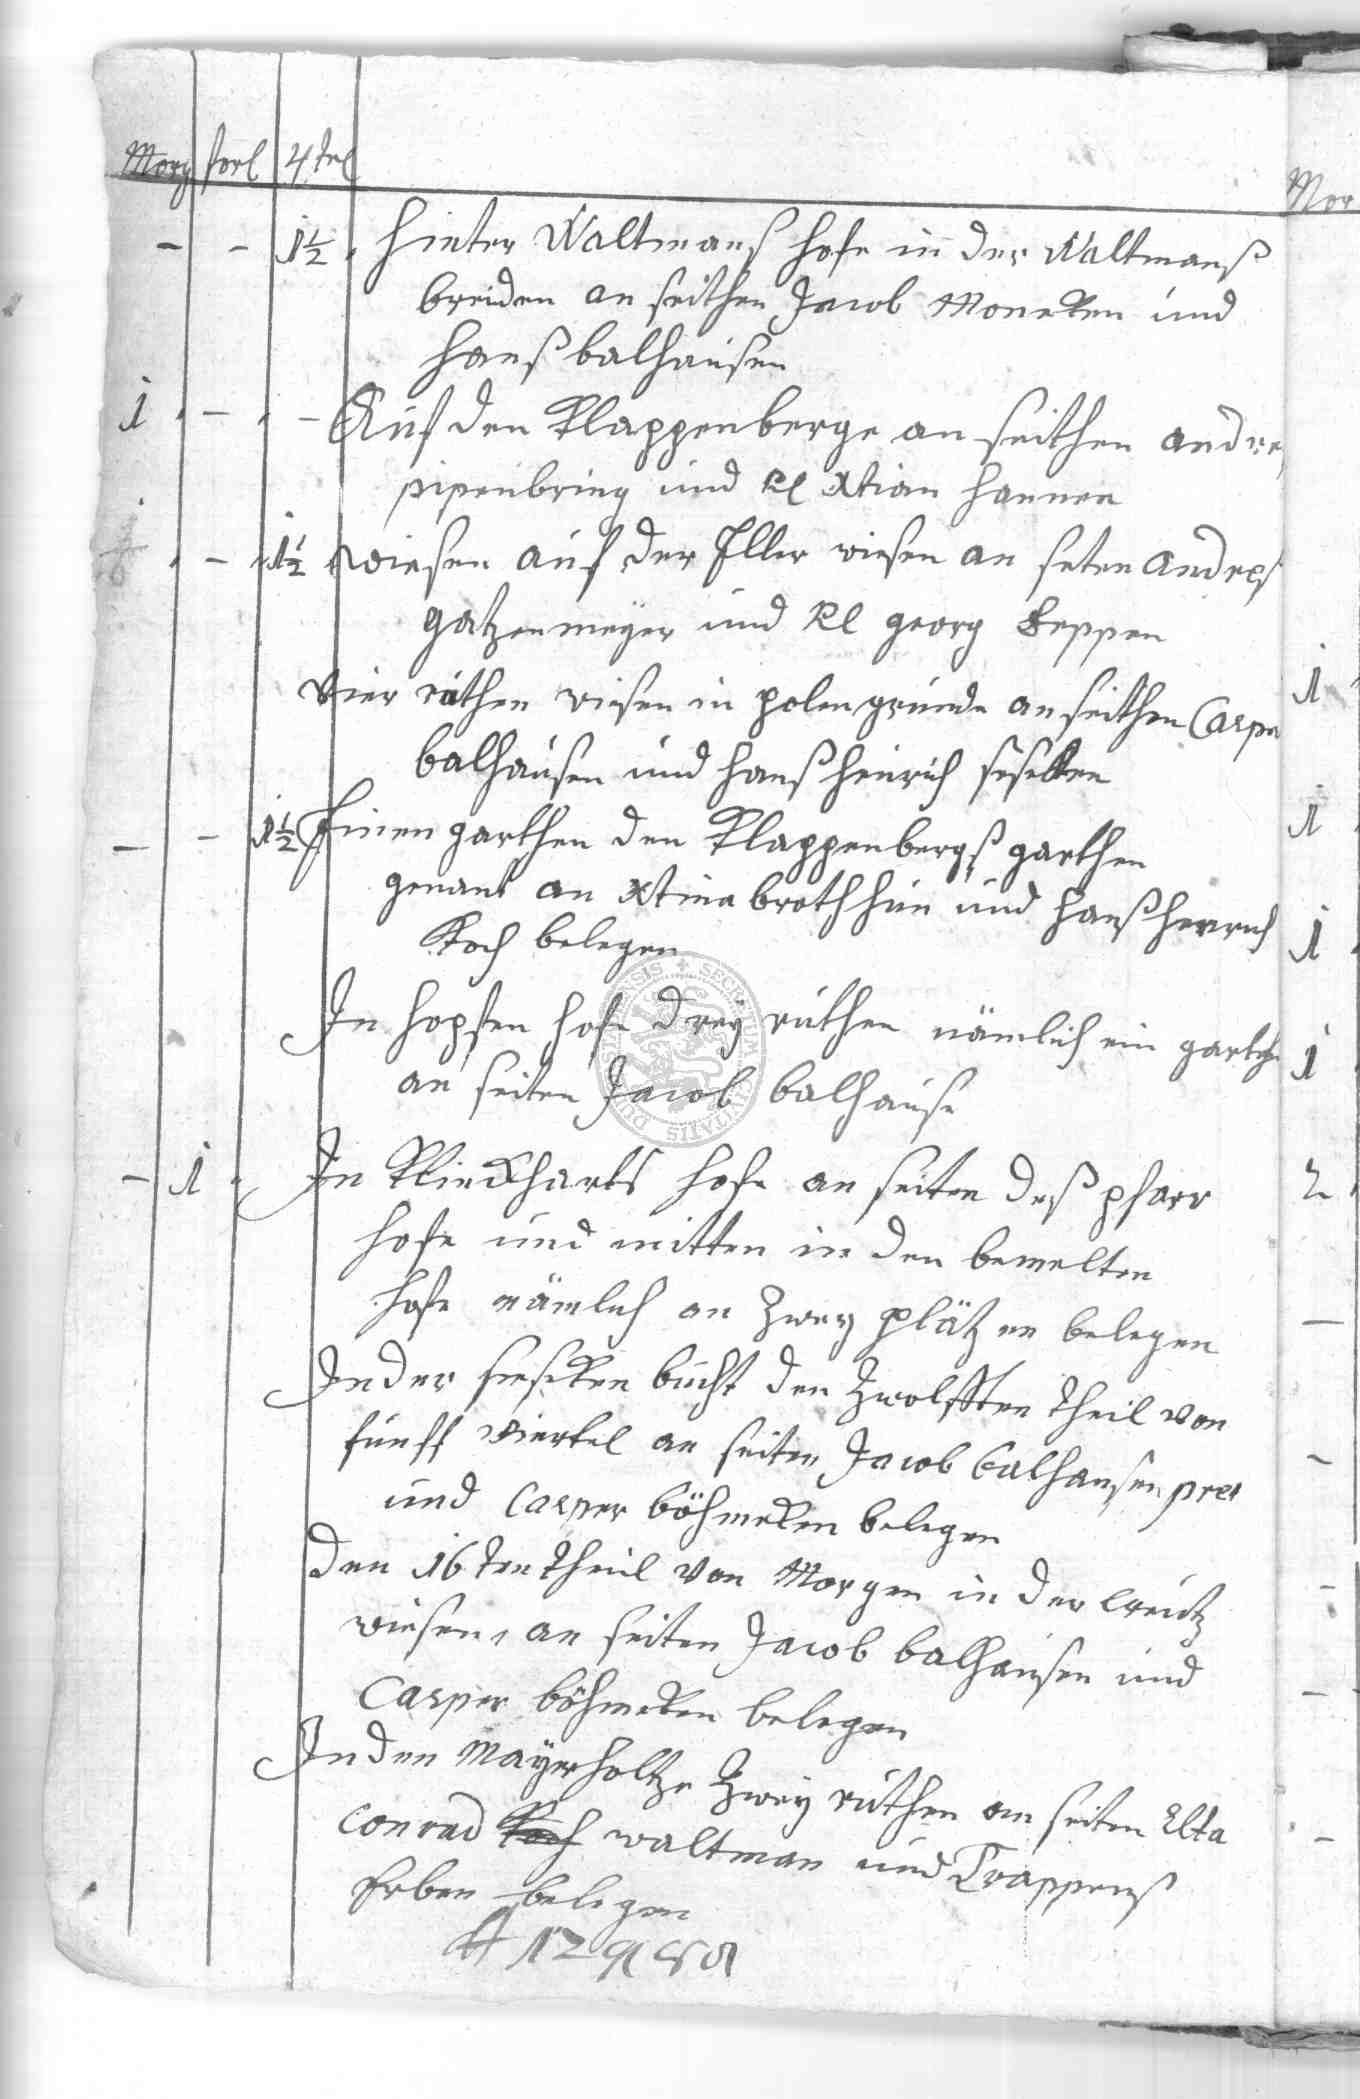 Morg forl 4tel
- - 1½ hinter Waltmanß hofe in der Waltmanß
breiden an seithen Jacob Moneken und
hanß balhausen
1 - - Auf den Klappenberge an seithen andres
pipenbring und Kl Xtian hannen
- 1½ wiesen auf der Iller wiesen an seten Andreß
gatzenmeyer und Kl georg Seppen
Vier ruthen wiesen in polengrunde an seithen Casper
balhausen und hanß heinrich
- - 1½ Einen garthen den Klappenbergß garthen
genant an Xtina brothhun und hanß henrich
Koch belegen
In hopsten hofe Drey ruthen nämlich ein garthe
an seiten Jacob balhause
- 1 In Rinckharts hofe an seiten deß pfarr
hofe und mitten in den bemelten
hofe nämlich an Zwey plätzen belegen
In der bucht den Zwolfften theil von
funff Viertel an seiten Jacob balhausen
und Casper böhmeken belegen
Den 16ten theil von Morgen in der Creutz
wiesen, an seiten Jacob balhausen und
Casper böhmeken belegen
In den Mayerholtze Zwey ruthen an seiten Elta
Conrad Koch waltman und Trappenß
Erben belegen
Mor
1
1
1
1
2
-
-
-
-
-
SECRETUM CIVITATIS